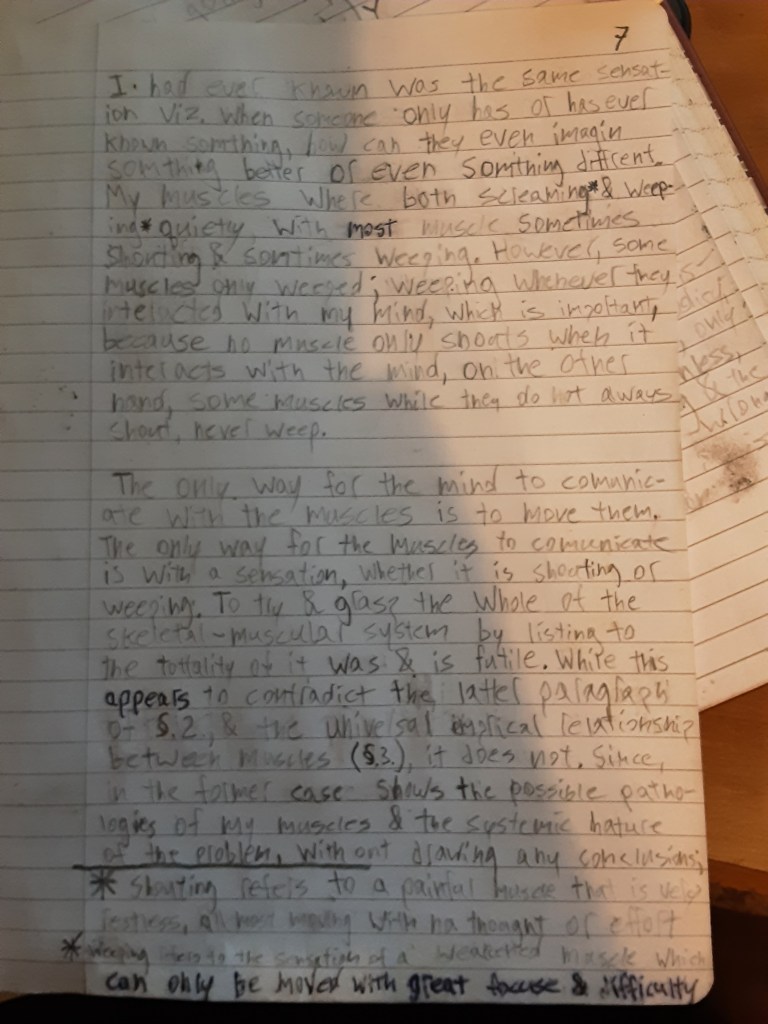 7
I. had ever known was the same sensat-
ion viz. When someone only has or has ever
known somthing, how can they even imagin
somthing better or even somthing diffrent.
My muscles where both screaming* & weep-
ing* quiety, with most muscle sometimes
shouting & somtimes weeping. However, some
muscles only weeped; weeping whenever they
interacted with my mind, which is important,
because no muscle only shoots when it
interacts with the mind, on the other
hand, some muscles while they do not aways
shout, never weep.
The only way for the mind to comunic-
ate with the muscles is to move them.
The only way for the muscles to comunicate
is with a sensation, whether it is shouting or
weeping. To try & grasp the whole of the
skeletal-muscular system by listing to
the tottality of it was & is futile. While this
appears to contradict the latter paragraph
of §.2, & the universal relationship
between muscles (§.3.), it does not. Since,
in the former case shows the possible patho-
logies of my muscles & the systemic nature
of the problem, without drawing any conclusions;
* Shouting refers to a painful muscle that is very
restless, allmost moving with no thought or effort
* weeping refers to the sensation of a weakened muscle which
can only be moved with great focuse & difficulty
only
nless,
& the